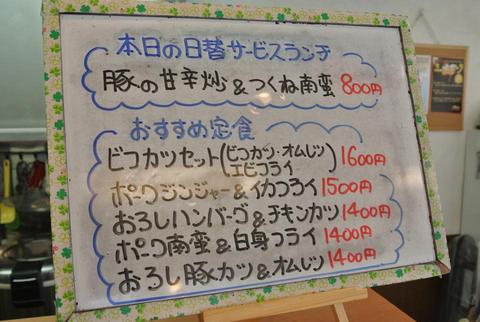 本日の日替サービスランチ
豚の甘辛炒&つくね南蛮 800円
おすすめ定食
ビフカツセット(ビフカツ・オムレツ エビフライ 1600円
ポークジンジャー&イカフライ 1500円
おろしハンバーグ&チキンカツ 1400円
ポーク南蛮&白身フライ 1400円
おろし豚カツ&オムレツ 1400円